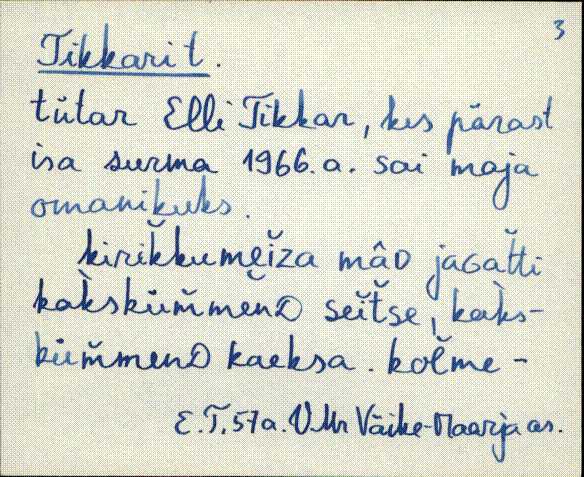 3
Tikkarit.
tütar Elli Tikkar, kes pärast
isa surma 1966.a. sai maja
omanikuks.
kirik̆kumĕĭza mâD jaGat̆ti
kak̀skŭm̆menD sĕĭt̆se, kak̀s-
kŭm̆menD kaeksa. kol̆me-
E.T. 57a. V.Mr Väike-Maarja as.